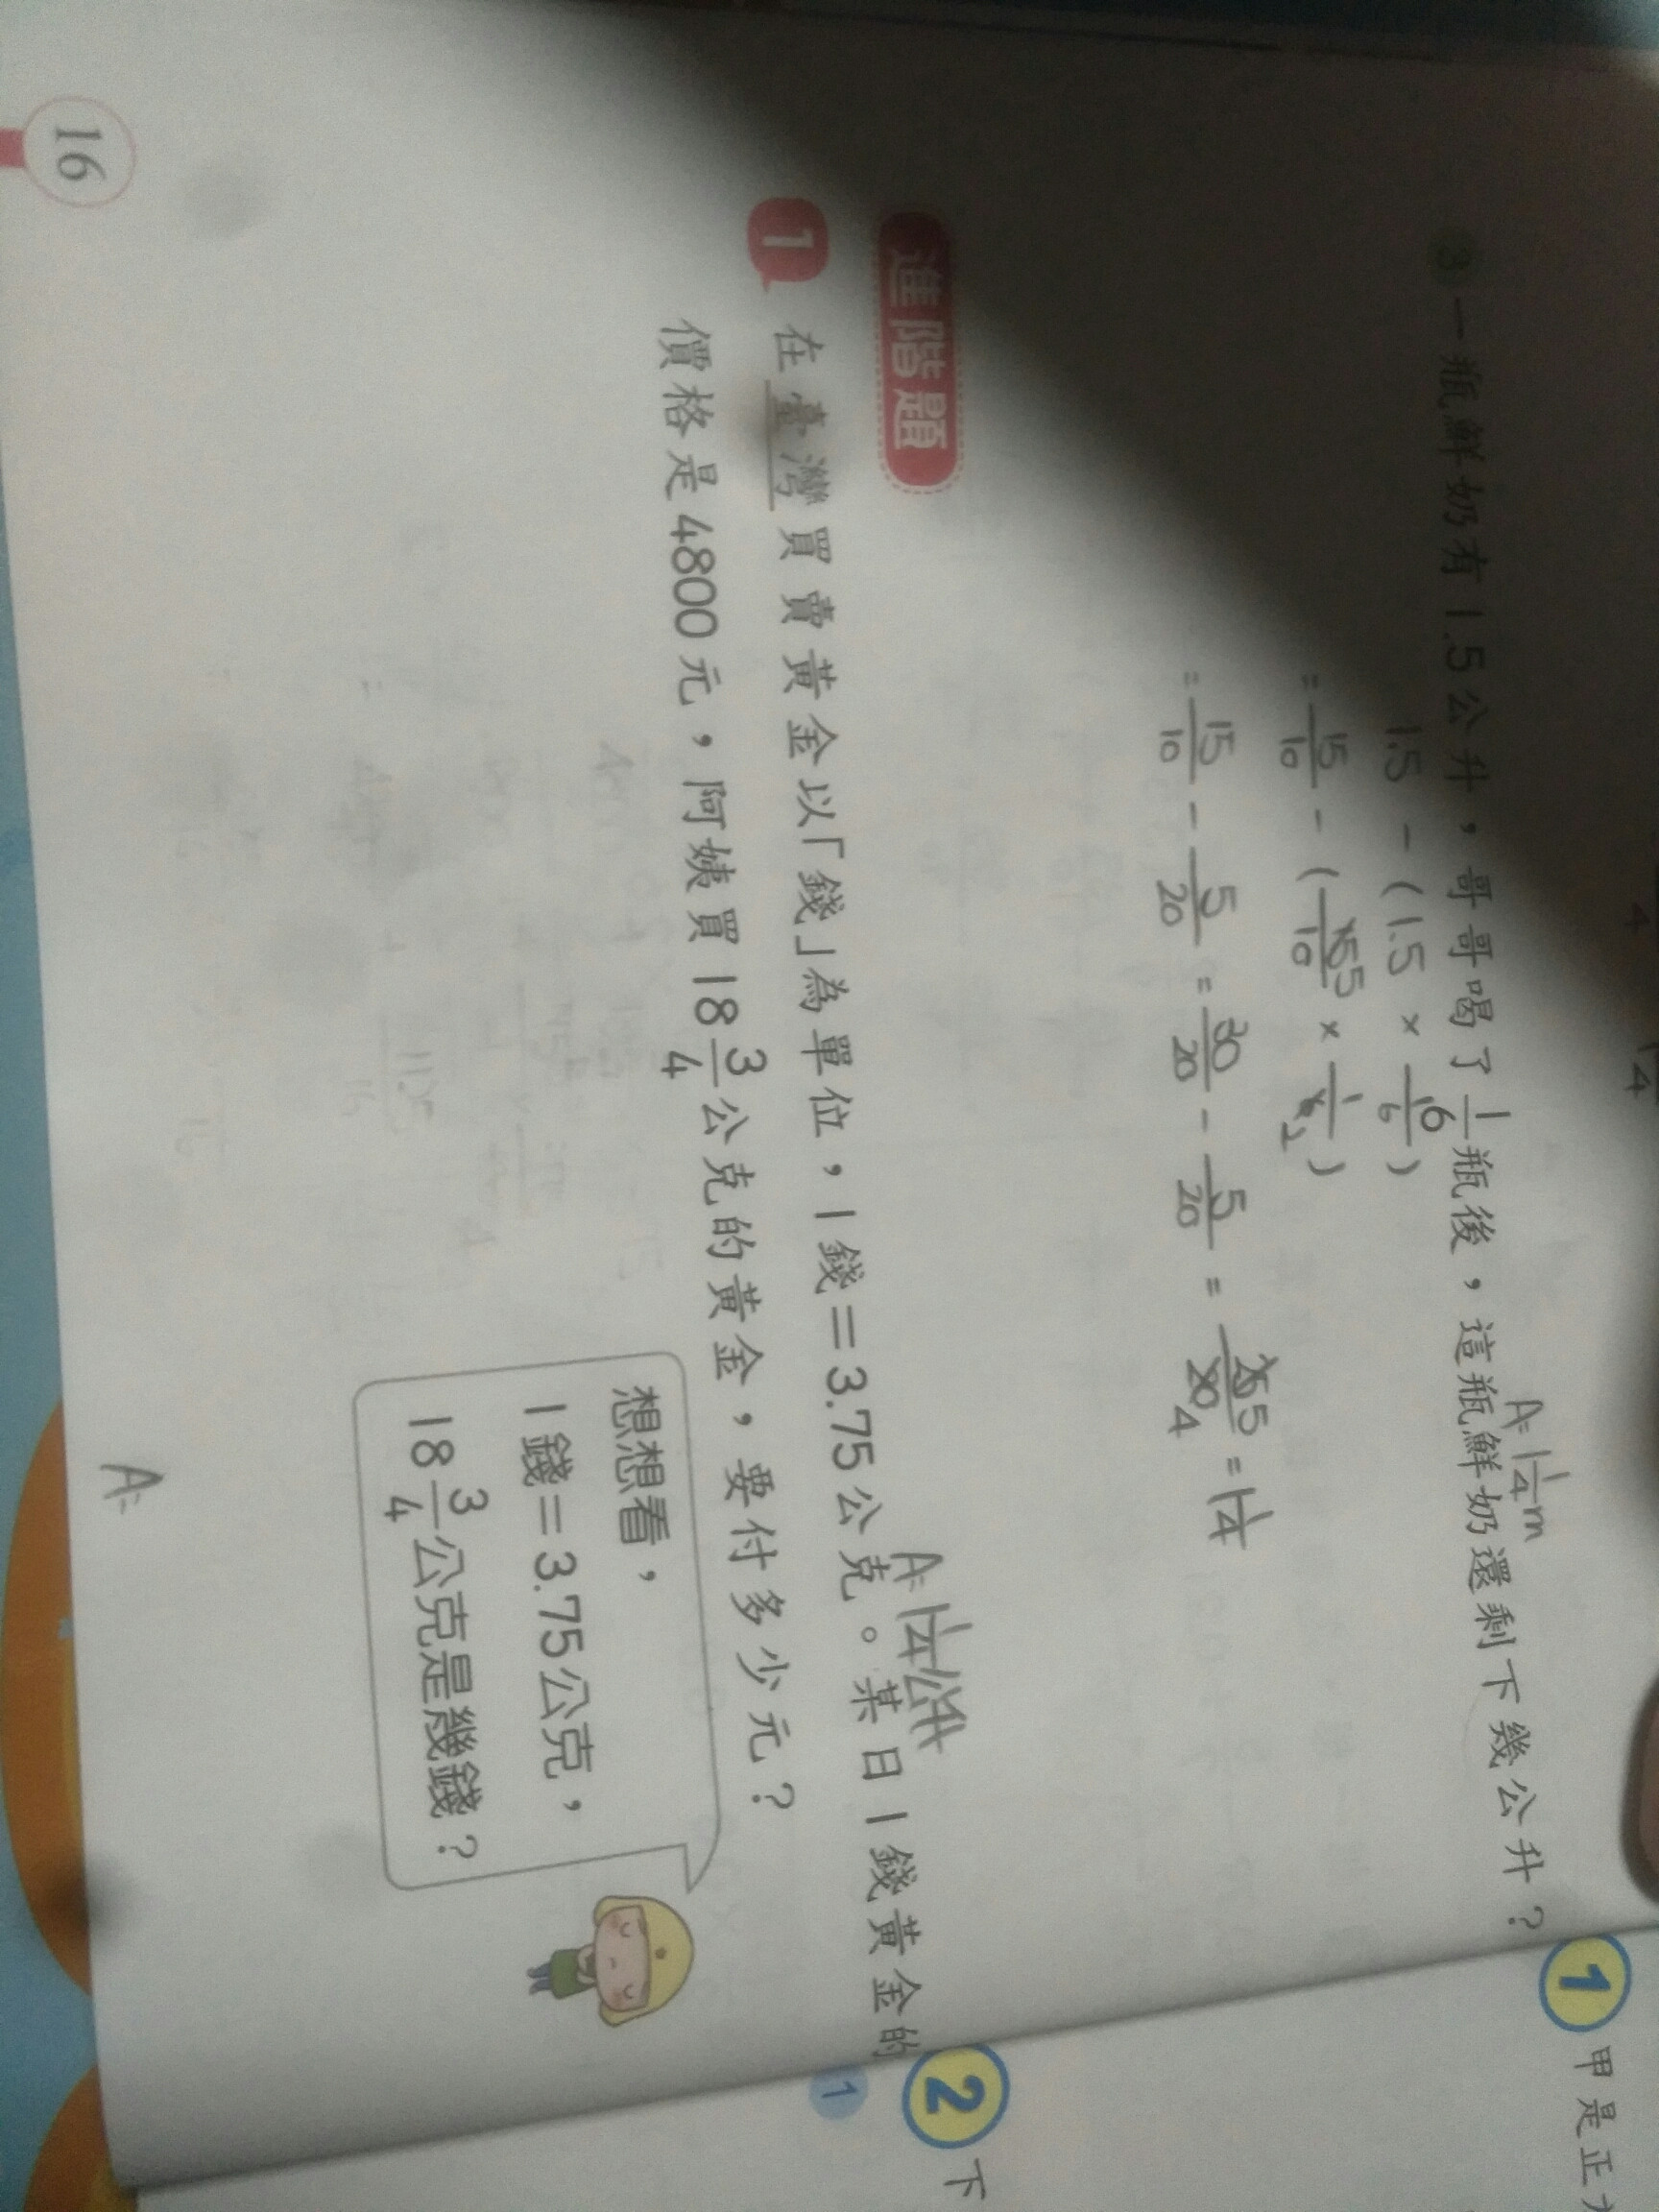 ③一瓶鮮奶有1.5公升，哥哥喝了1/6瓶後，這瓶鮮奶還剩下幾公升？
A=1 1/4 m
1.5 - (1.5 × 1/6)
= 15/10 - (15 5/10 × 1/6 2)
= 15/10 - 5/20 = 30/20 - 5/20 = 25 5/20 4 = 1 1/4
A=1 1/4公升
進階題
1 在臺灣買賣黃金以「錢」為單位，1錢＝3.75公克。某日1錢黃金的
價格是4800元，阿姨買18 3/4公克的黃金，要付多少元？
想想看，
1錢＝3.75公克，
18 3/4公克是幾錢？
A=
16
1 甲是正
2 下
1